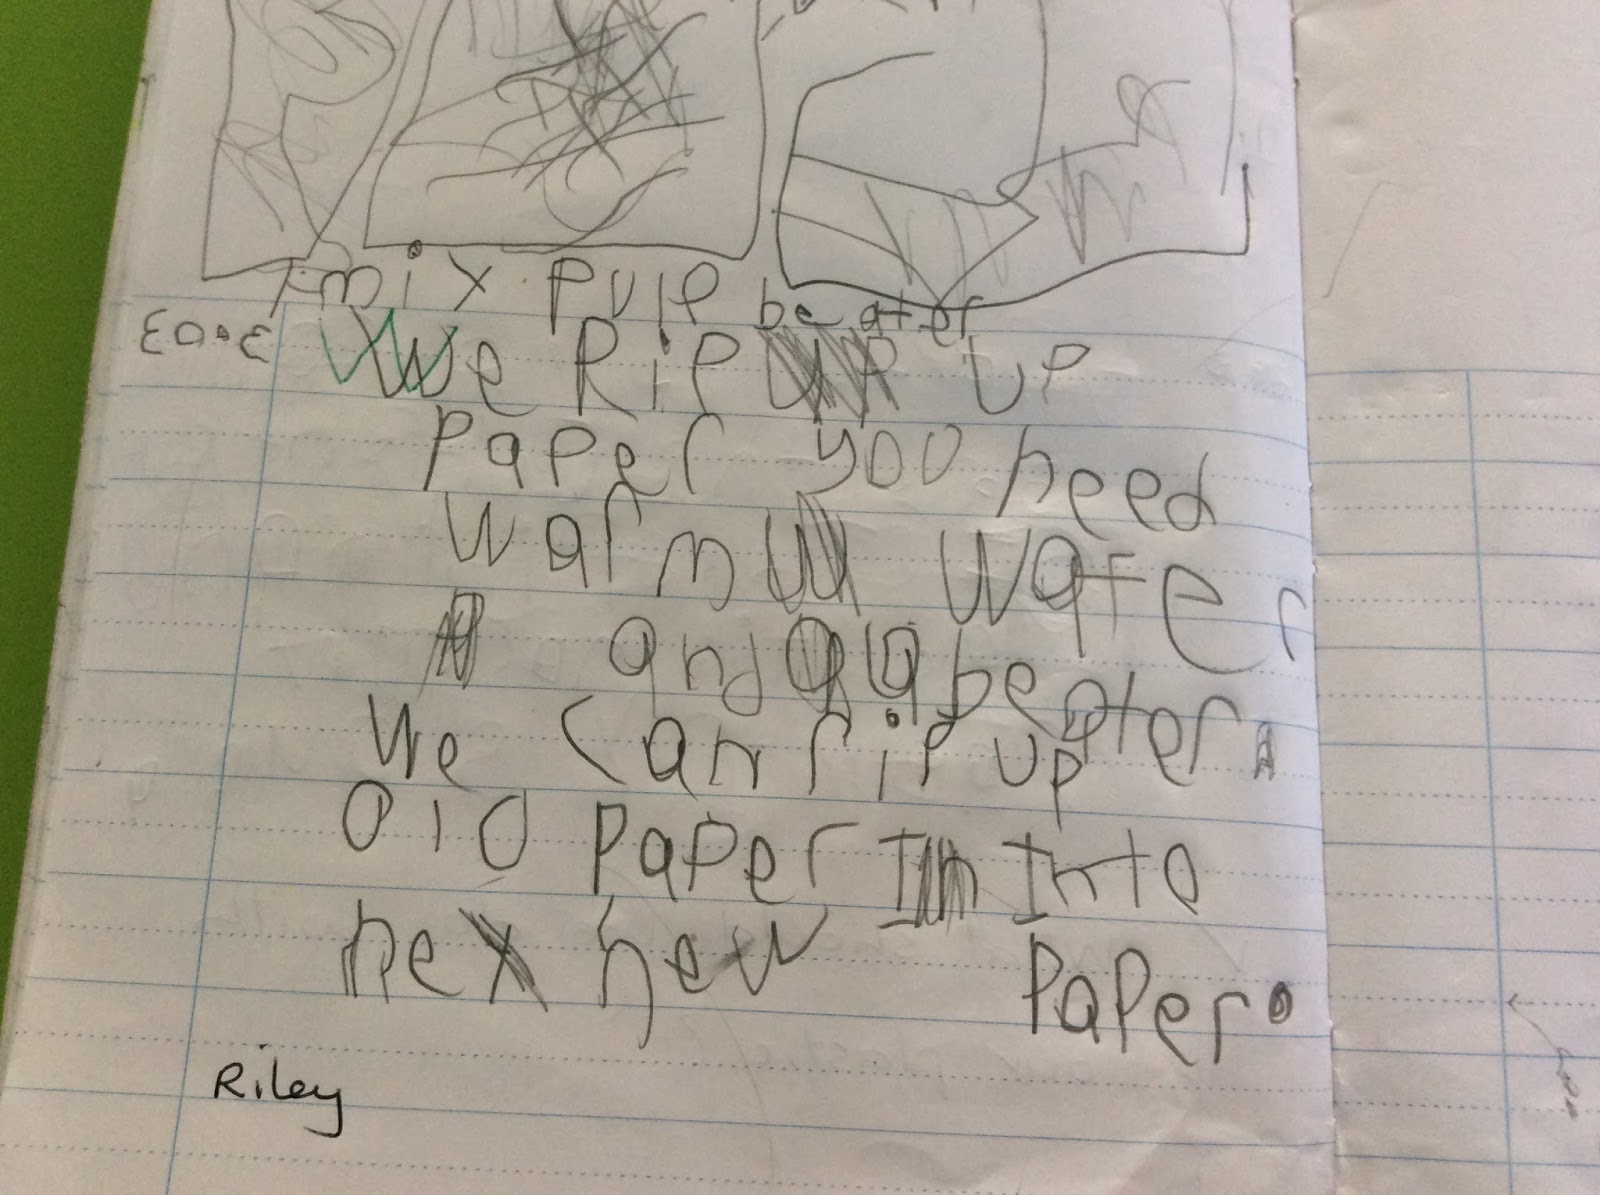 mix pulp beater
We Rip up
Paper you need
warm water
and a beater.
We can rip up
old paper Into
new paper.
Riley